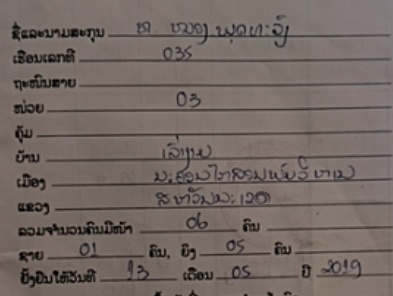 ຊື່ແລະນາມສະກຸນ ທ. ໝອງ ພຸດທະວົງ
ເຮືອນເລກທີ 035
ຖະໜົນສາຍ
ໜ່ວຍ 03
ຄຸ້ມ
ບ້ານ
ເມືອງ ນະຄອນໄກສອນພົມວິຫານ
ແຂວງ ສະຫວັນນະເຂດ
ລວມຈຳນວນຄົນມີໜ້າ 06 ຄົນ
ຊາຍ 01 ຄົນ, ຍິງ 05 ຄົນ
ຍັ້ງຢືນໃຫ້ວັນທີ 13 ເດືອນ 05 ປີ 2019